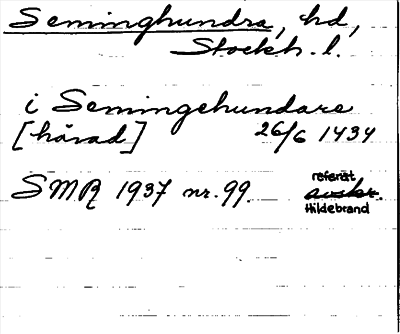 Seminghundra, hd,
Stockh. l.
i Semingehundare
[härad] 26/6 1434
SMR 1937 nr. 99. referat
avskr.
Hildebrand